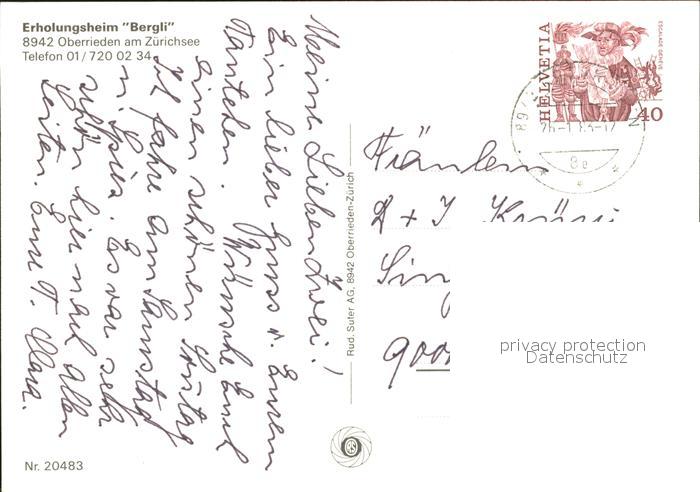 Erholungsheim "Bergli"
8942 Oberrieden am Zürichsee
Telefon 01/720 02 34
Meine Lieben Zwei!
Ein lieber Gruss v. Eurem
Tantchen. Wünsche Euch
einen schönen Sonntag
Ich fahre am Samstag
n. Spiez. Es war sehr
schön hier nach allen
Seiten. Eure T. Clara.
Nr. 20483
Rud. Suter AG, 8942 Oberrieden-Zürich
HELVETIA
ESCALADE GENÈVE
40
89
26-1.83-17
8e
Fräulein
R + I
Sin
900
privacy protection
Datenschutz